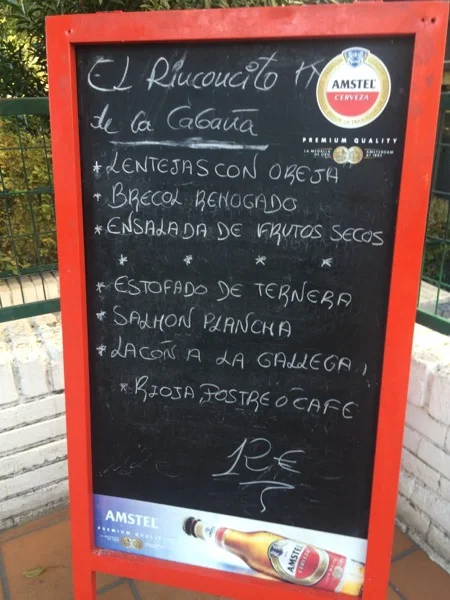 EL RINCONCITO
de la CABAÑA
AMSTEL
CERVEZA
PREMIUM QUALITY
* LENTEJAS CON OREJA
* BRECOL REHOGADO
* ENSALADA DE FRUTOS SECOS
* * * *
* ESTOFADO DE TERNERA
* SALMON PLANCHA
* LACÓN A LA GALLEGA,
* RIOJA, POSTRE O CAFE
12€
AMSTEL
PREMIUM QUALITY
AMSTEL